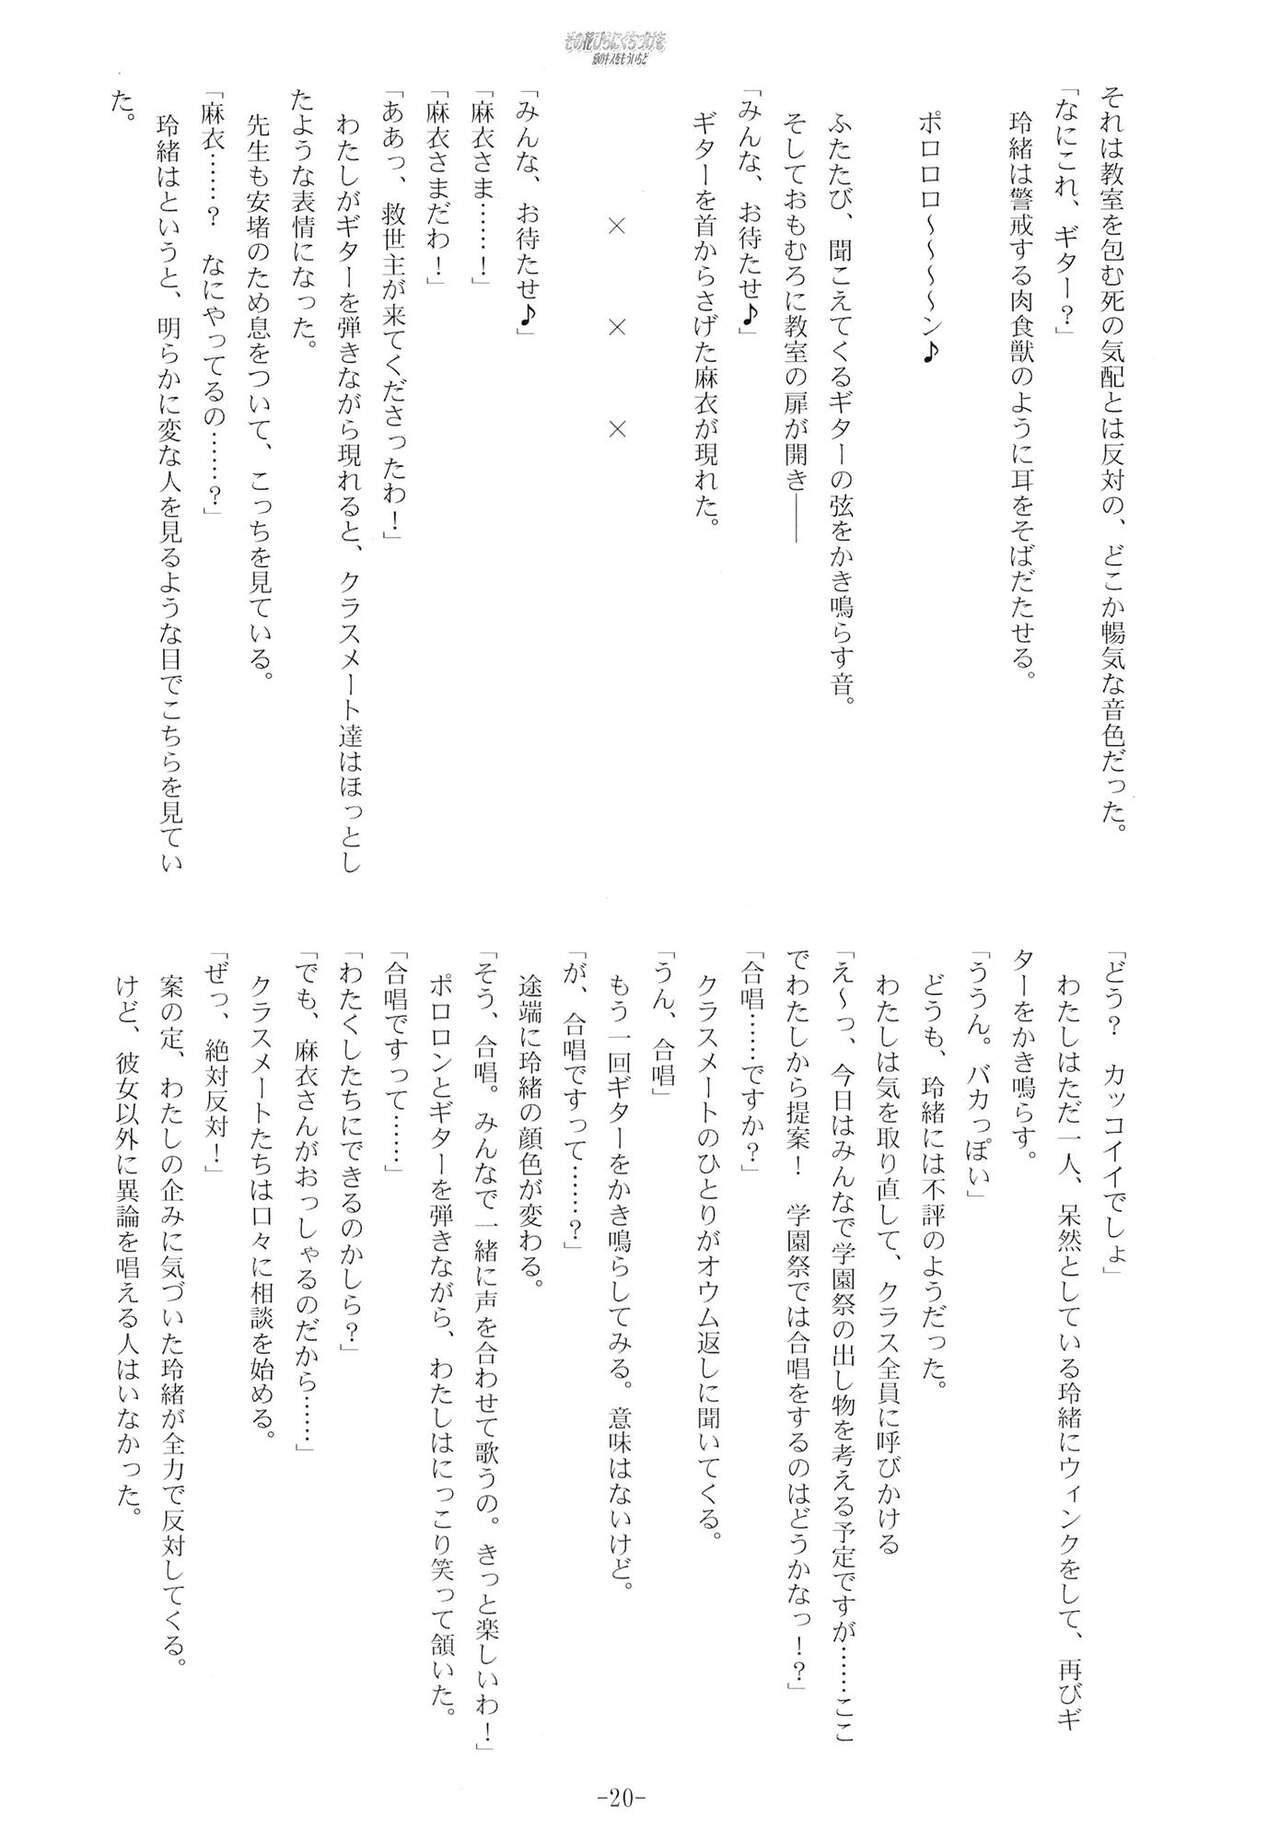 その花びらにくちづけを
あの日のキスをもういちど
それは教室を包む死の気配とは反対の、どこか暢気な音色だった。
「なにこれ、ギター？」
玲緒は警戒する肉食獣のように耳をそばだたせる。
ポロロロ～～～～ン♪
ふたたび、聞こえてくるギターの弦をかき鳴らす音。
そしておもむろに教室の扉が開き――
「みんな、お待たせ♪」
ギターを首からさげた麻衣が現れた。
×　×　×
「みんな、お待たせ♪」
「麻衣さま……！」
「麻衣さまだわ！」
「ああっ、救世主が来てくださったわ！」
わたしがギターを弾きながら現れると、クラスメート達はほっとし
たような表情になった。
先生も安堵のため息をついて、こっちを見ている。
「麻衣……？　なにやってるの……？」
玲緒はというと、明らかに変な人を見るような目でこちらを見てい
た。
「どう？　カッコイイでしょ」
わたしはただ一人、呆然としている玲緒にウィンクをして、再びギ
ターをかき鳴らす。
「ううん。バカっぽい」
どうも、玲緒には不評のようだった。
わたしは気を取り直して、クラス全員に呼びかける
「え～っ、今日はみんなで学園祭の出し物を考える予定ですが……ここ
でわたしから提案！　学園祭では合唱をするのはどうかなっ！？」
「合唱……ですか？」
クラスメートのひとりがオウム返しに聞いてくる。
「うん、合唱」
もう一回ギターをかき鳴らしてみる。意味はないけど。
「が、合唱ですって……？」
途端に玲緒の顔色が変わる。
「そう、合唱。みんなで一緒に声を合わせて歌うの。きっと楽しいわ！」
ポロロンとギターを弾きながら、わたしはにっこり笑って頷いた。
「合唱ですって……」
「わたくしたちにできるのかしら？」
「でも、麻衣さんがおっしゃるのだから……」
クラスメートたちは口々に相談を始める。
「ぜっ、絶対反対！」
案の定、わたしの企みに気づいた玲緒が全力で反対してくる。
けど、彼女以外に異論を唱える人はいなかった。
-20-